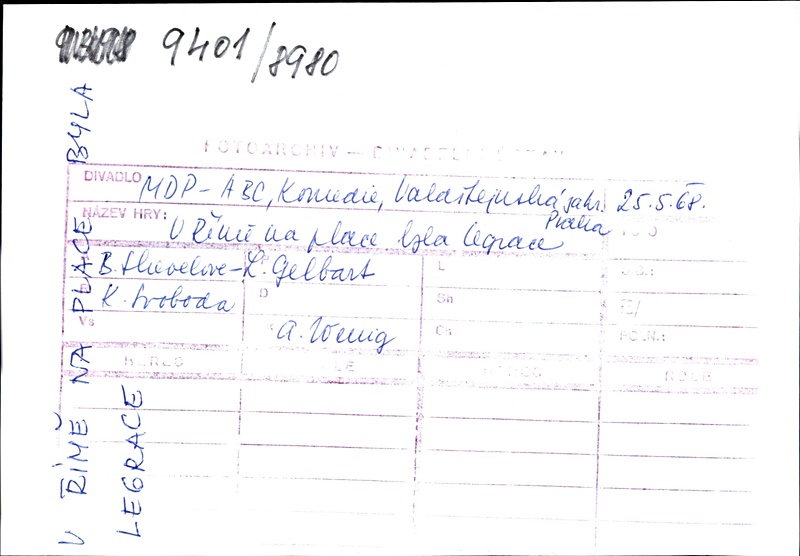 9401/8980
FOTOARCHIV — DIVADELNÍ ÚSTAV
DIVADLO MDP - ABC, Komedie, Valdštejnská zahr. 25.5.68.
Praha
NÁZEV HRY: V Římě na place byla legrace
B. Shevelove - L. Gelbart L
K. Svoboda D Sh
Vs A. Wenig Ch POZN.:
HEREC ROLE HEREC ROLE
V ŘÍMĚ NA PLACE BYLA
LEGRACE